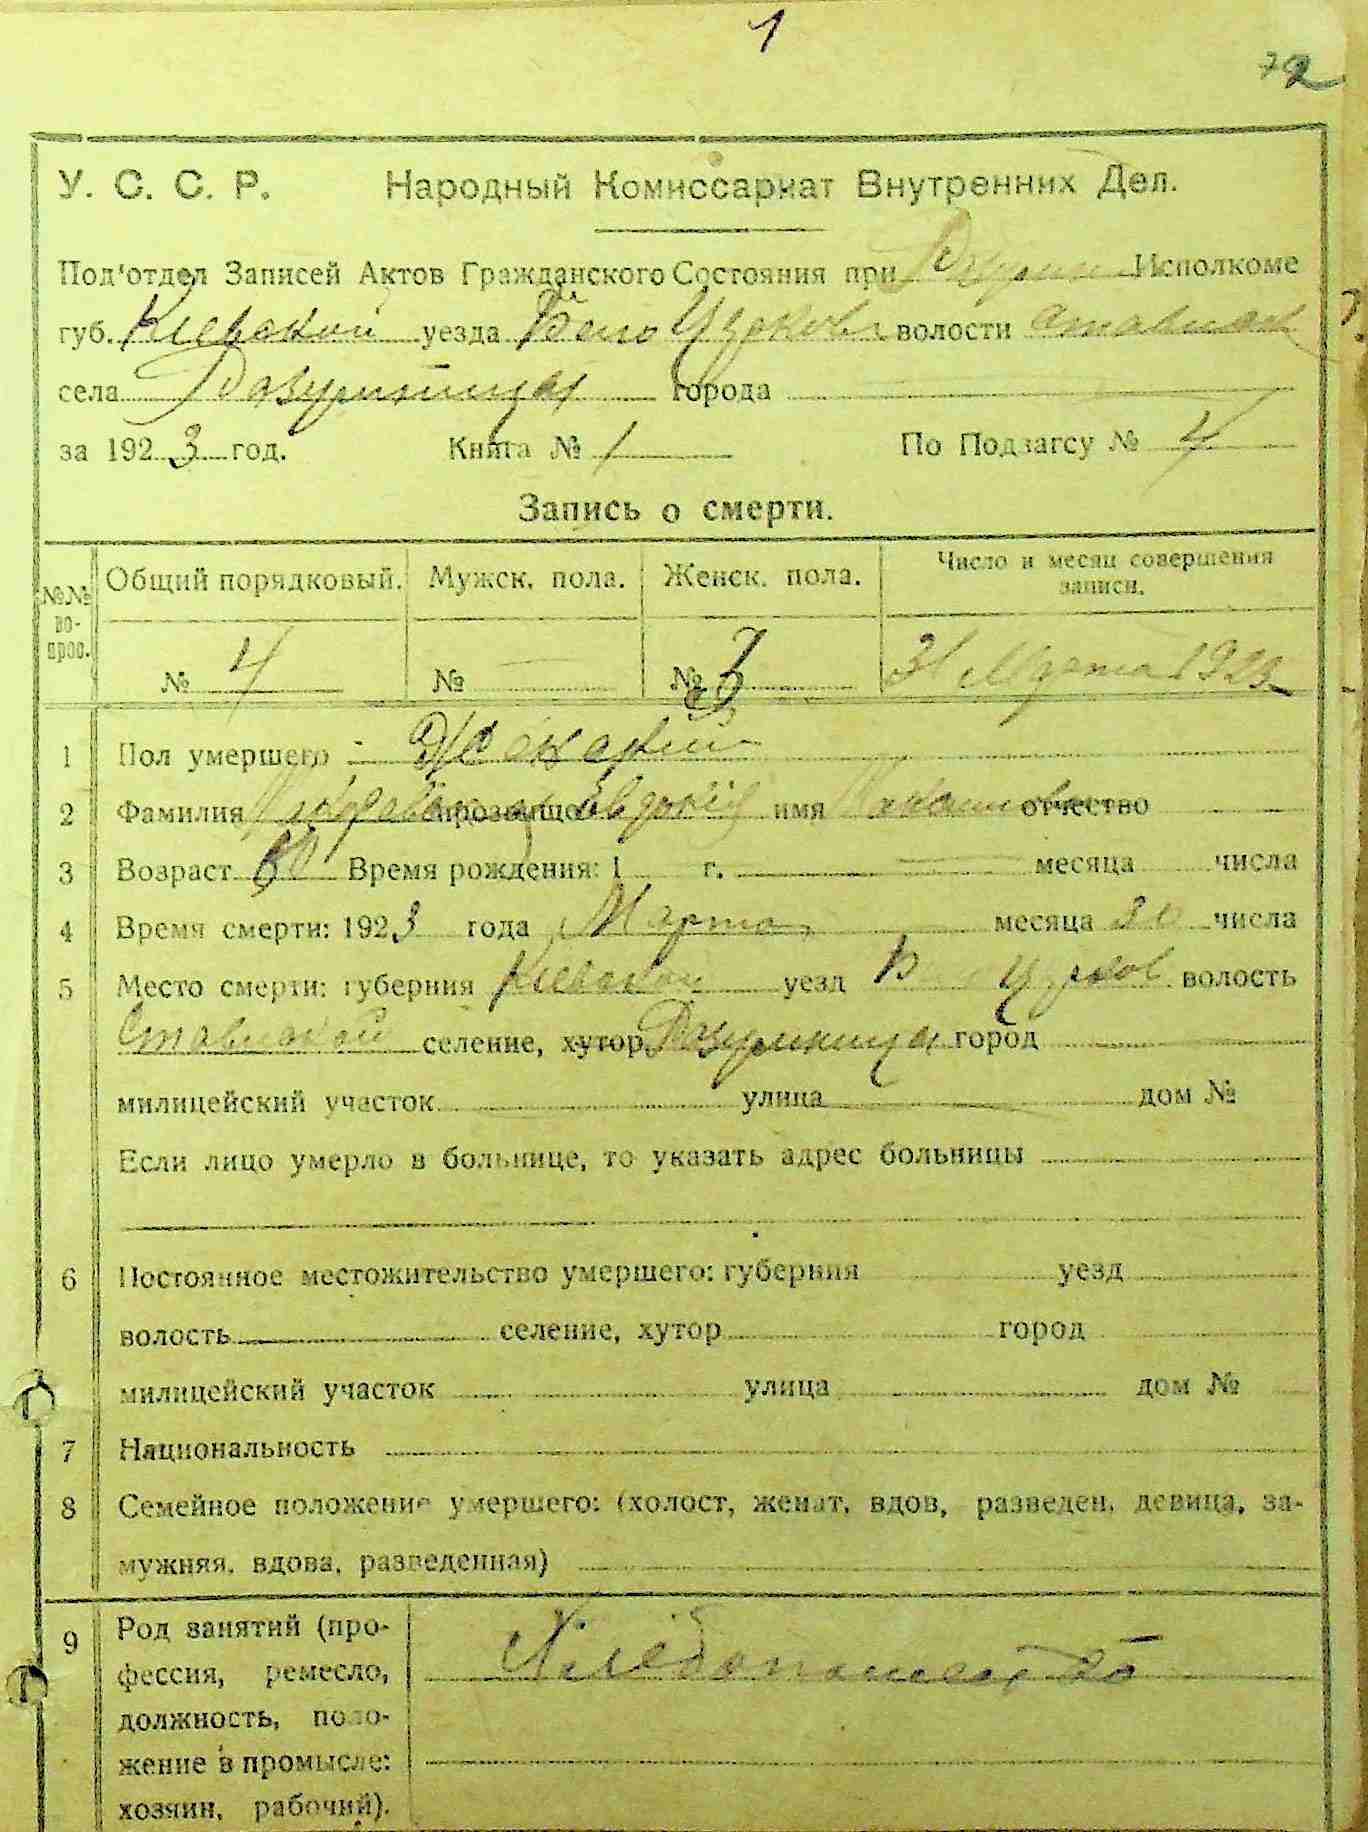 1
72
У. С. С. Р. Народный Комиссариат Внутренних Дел.
Под'отдел Записей Актов Гражданского Состояния при Исполкоме
губ. Киевской уезда Бело Церковс волости Ставиской
села города
за 1923 год. Книга № 1 По Подзагсу № 4
Запись о смерти.
№№ во- прос. Общий порядковый. Мужск. пола. Женск. пола. Число и месяц совершения записи.
№ 4 № № 3 31 Марта 1923
1 Пол умершего Женский
2 Фамилия прозвище Евдокия имя отчество
3 Возраст 60 Время рождения: 1 г. месяца числа
4 Время смерти: 1923 года Марта месяца 30 числа
5 Место смерти: губерния Киевской уезд Б Церков волость
Ставиской селение, хутор город
милицейский участок улица дом №
Если лицо умерло в больнице, то указать адрес больницы
6 Постоянное местожительство умершего: губерния уезд
волость селение, хутор город
милицейский участок улица дом №
7 Национальность
8 Семейное положение умершего: (холост, женат, вдов, разведен, девица, за-
мужняя, вдова, разведенная)
9 Род занятий (про-
фессия, ремесло, Хлебопашество
должность, поло-
жение в промысле:
хозяин, рабочий).